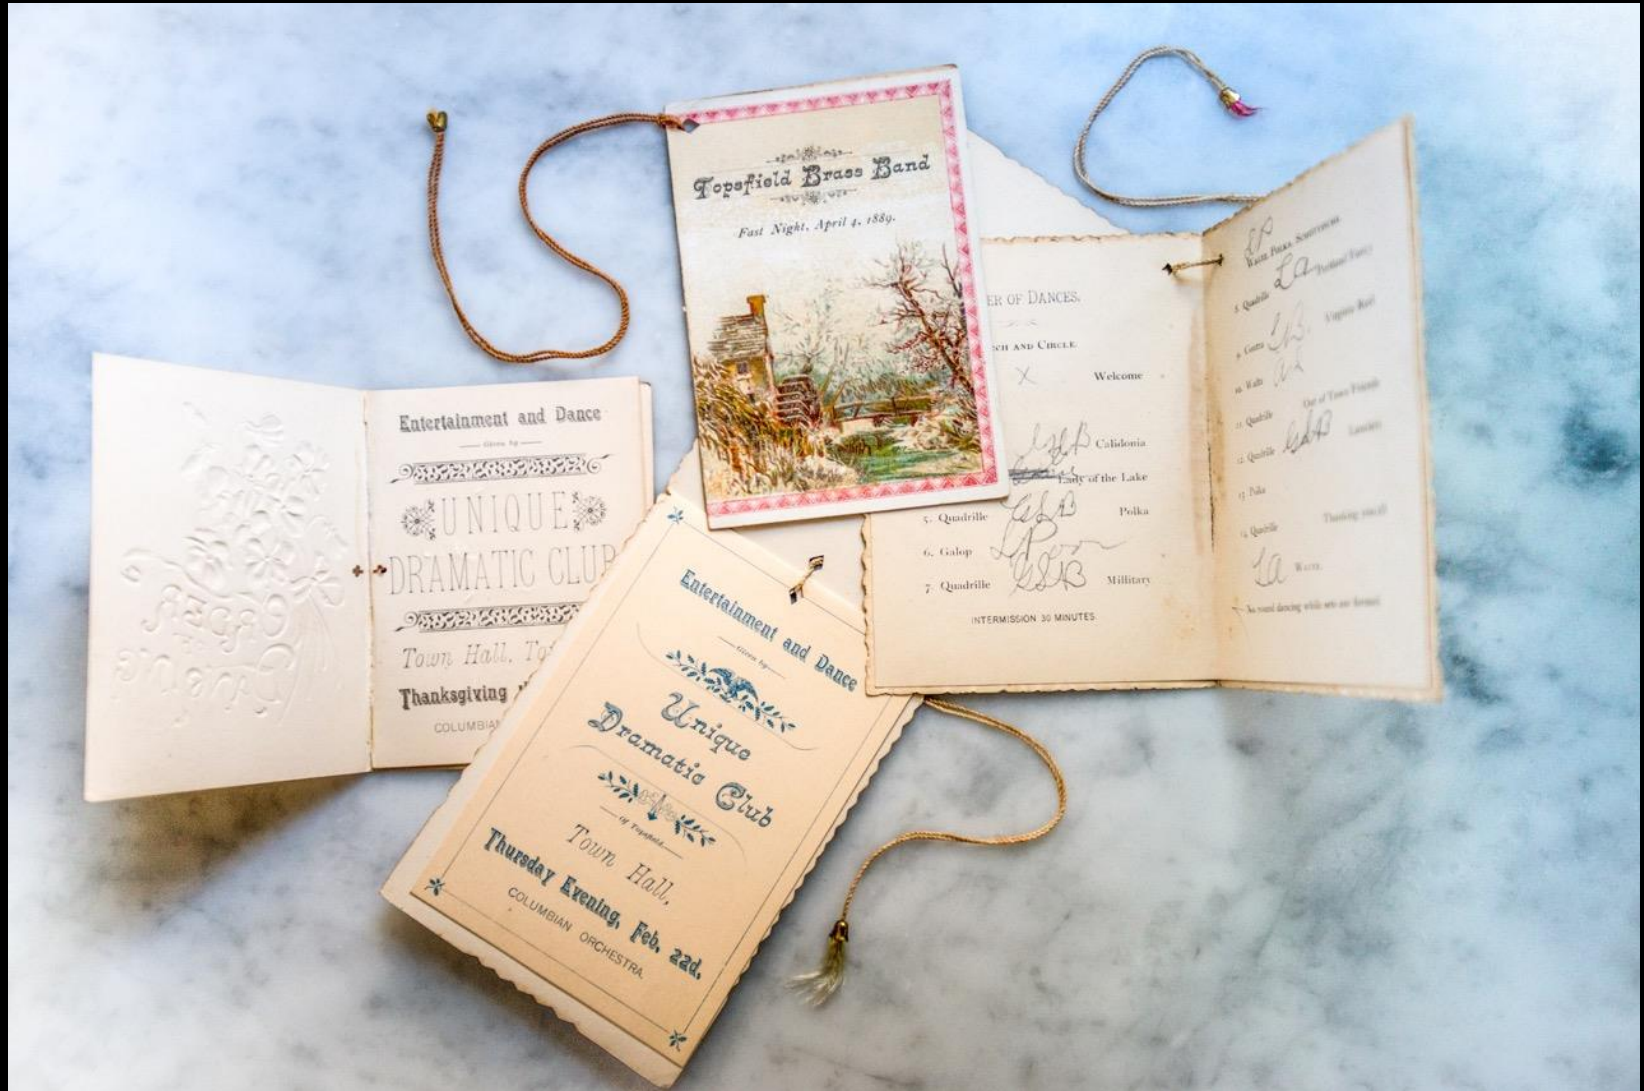 Topsfield Brass Band
Fast Night, April 4, 1889.
Entertainment and Dance
Given by
UNIQUE
DRAMATIC CLUB
Town Hall, To
Thanksgiving
COLUMBIAN
ORDER
of
DANCING
Entertainment and Dance
Given by
Unique
Dramatic Club
of Topsfield
Town Hall,
Thursday Evening, Feb. 22d.
COLUMBIAN ORCHESTRA.
ER OF DANCES.
CH AND CIRCLE.
X Welcome
Calidonia
Lady of the Lake
5. Quadrille GSB Polka
6. Galop LP
7. Quadrille GSB Millitary
INTERMISSION 30 MINUTES.
LP
Waltz, Polka, Schottische.
8. Quadrille La Portland Fancy
9. Contra Virginia Reel
10. Waltz
11. Quadrille Out of Town Friends
12. Quadrille GSB Lanciers
13. Polka
14. Quadrille Thanking you all
La Waltz.
No round dancing while sets are formed